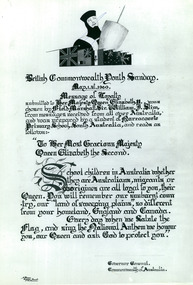 British Commonwealth Youth Sunday.
May 1st, 1960.
Message of Loyalty
submitted to Her Majesty Queen Elizabeth II, was
chosen by Field Marshall Sir William Slim,
from messages received from all over Australia,
and was prepared by a student of Naracoorte
Primary School, South Australia, and reads as
follows:-
"To Her Most Gracious Majesty
Queen Elizabeth the Second.
School children in Australia whether
they are Australians, migrants or
Aborigines are all loyal to you, their
Queen. You will remember our sunburnt coun-
try, our "land of sweeping plains", so different
from your homeland, England and Canada.
Every day when we salute the
Flag, and sing the National Anthem we honour
you, our Queen and ask God to protect you."
Governor General,
Commonwealth of Australia.